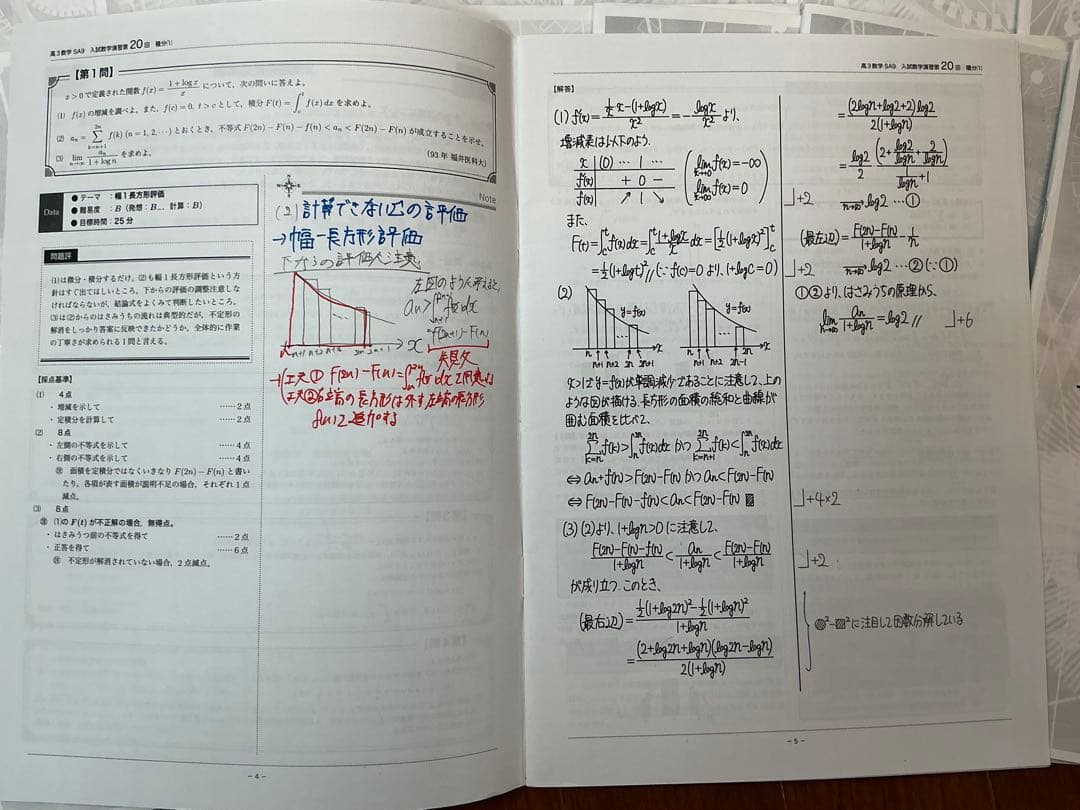 高3数学SA9 入試数学演習素 20回 積分(1)
【第1問】
x>0で定義された関数 f(x)=(1+log x)/x について,次の問いに答えよ。
(1) f(x)の増減を調べよ。また,f(c)=0, t>c として,積分 F(t)=∫_c^t f(x)dx を求めよ。
(2) a_n=Σ_{k=n+1}^{2n} f(k) (n=1, 2, …) とおくとき,不等式 F(2n)-F(n)-f(n)<a_n<F(2n)-F(n) が成立することを示せ。
(3) lim_{n→∞} a_n/(1+log n) を求めよ。
('93年 福井医科大)
Data
●テーマ :幅1長方形評価
●難易度 :B(発想:B,計算:B)
●目標時間:25分
問題評
(1)は微分・積分するだけ。(2)も幅1長方形評価という方
針はすぐ出てほしいところ。下からの評価の調整注意しな
ければならないが,結論式をよくみて判断したいところ。
(3)は(2)からのはさみうちの流れは典型的だが,不定形の
解消をしっかり答案に反映できたかどうか。全体的に作業
の丁寧さが求められる1問と言える。
【採点基準】
(1) 4点
・増減を示して ……2点
・定積分を計算して ……2点
(2) 8点
・左側の不等式を示して ……4点
・右側の不等式を示して ……4点
㊟ 面積を定積分ではなくいきなり F(2n)-F(n) と書い
たり,各項が表す面積が説明不足の場合,それぞれ1点
減点。
(3) 8点
㊟ (1)のF(t)が不正解の場合,無得点。
・はさみうつ前の不等式を得て ……2点
・正答を得て ……6点
㊟ 不定形が解消されていない場合,2点減点。
Note
(2) 計算できないΣの評価
→幅一長方形評価
下からの評価に注意
左図のように考えると,
a_n>∫_{n+1}^{2n+1} f(x)dx
F(2n+1)-F(n)
n+1 n+2 2n 2n+1 x
失敗
→(工夫① F(2n)-F(n)=∫_n^{2n} f(x)dx
工夫② 右端の長方形は外す 左端の長方形
f(n)を追加する
-4-
高3数学SA9 入試数学演習素 20回 積分(1)
【解答】
(1) f'(x)=(1/x・x-(1+logx))/x²=-logx/x² より,
増減表は以下のよう.
x | (0) … 1 …
f'(x) | + 0 -
f(x) | ↗ 1 ↘
(lim_{x→+0} f(x)=-∞
lim_{x→∞} f(x)=0)
また,
F(t)=∫_c^t f(x)dx=∫_c^t (1+logx)/x dx=[1/2(1+logx)²]_c^t
=1/2(1+logt)² // (∵f(c)=0 より, 1+logc=0)
(2)
y=f(x) y=f(x)
n n+1 n+2 2n 2n+1 x
n n+1 n+2 2n-1 2n x
x>1でy=f(x)が単調減少であることに注意して,上の
ような図が描ける.長方形の面積の総和と曲線が
囲む面積を比べて,
Σ_{k=n}^{2n} f(k)>∫_n^{2n} f(x)dx かつ Σ_{k=n+1}^{2n} f(k)<∫_n^{2n} f(x)dx
⇔ a_n+f(n)>F(2n)-F(n) かつ a_n<F(2n)-F(n)
⇔ F(2n)-F(n)-f(n)<a_n<F(2n)-F(n) ▨
(3) (2)より, 1+logn>0 に注意して,
(F(2n)-F(n)-f(n))/(1+logn) < a_n/(1+logn) < (F(2n)-F(n))/(1+logn)
が成り立つ.このとき,
(最右辺)=(1/2(1+log2n)²-1/2(1+logn)²)/(1+logn)
=(2+log2n+logn)(log2n-logn)/2(1+logn)
=(2logn+log2+2)log2/2(1+logn)
=log2/2・(2+log2/logn+2/logn)/(1/logn+1)
」+2 →_{n→∞} log2 …①
(最左辺)=(F(2n)-F(n))/(1+logn)-1/n
」+2 →_{n→∞} log2 …② (∵①)
①②より,はさみうちの原理から,
lim_{n→∞} a_n/(1+logn)=log2 // 」+6
」+4×2
」+2
●²-▨²に注目して因数分解している
-5-